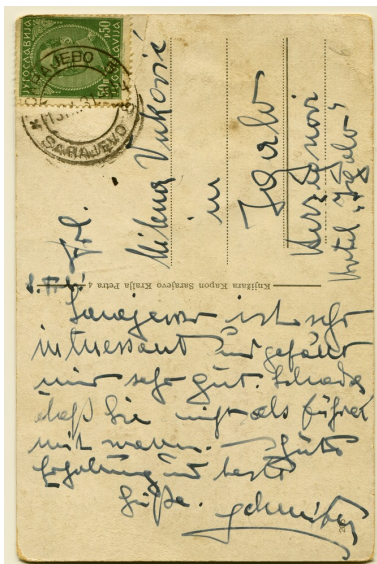 ЈУГОСЛАВИЈА
САРАЈЕВО
SARAJEVO
Frl.
Milena Vuković
in
Igalo
Hotel „Igalo“
Knjižara Kapon Sarajevo Kralja Petra 4
Sarajewo ist sehr
interessant und gefällt
mir sehr gut. Schade,
daß Sie nicht als Führer
mit waren. — Gute
Erholung und beste
Grüße.